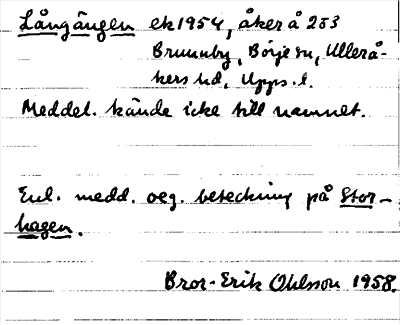 Långängen ek 1954, åker å 233
Brunnby, Börje sn, Ullerå-
kers hd, Upps. l.
Meddel. kände icke till namnet.
Enl. medd. oeg. beteckning på Stor-
hagen.
Bror-Erik Ohlsson 1958.